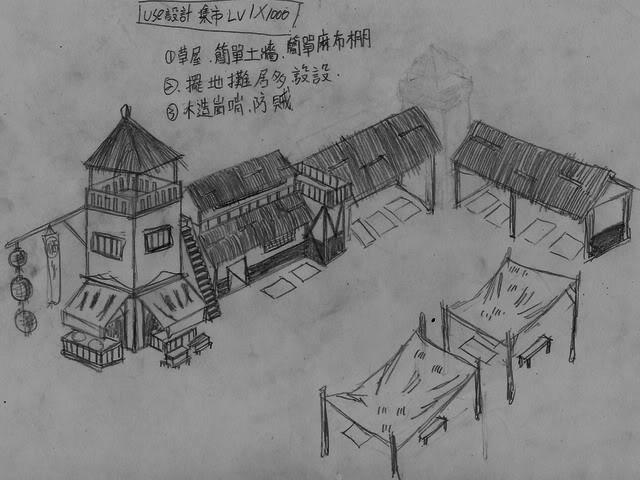 USE設計 集市 LV1X1000
①草屋.簡單土牆.簡單麻布棚
②.擺地攤居多設設.
③木造崗哨.防賊